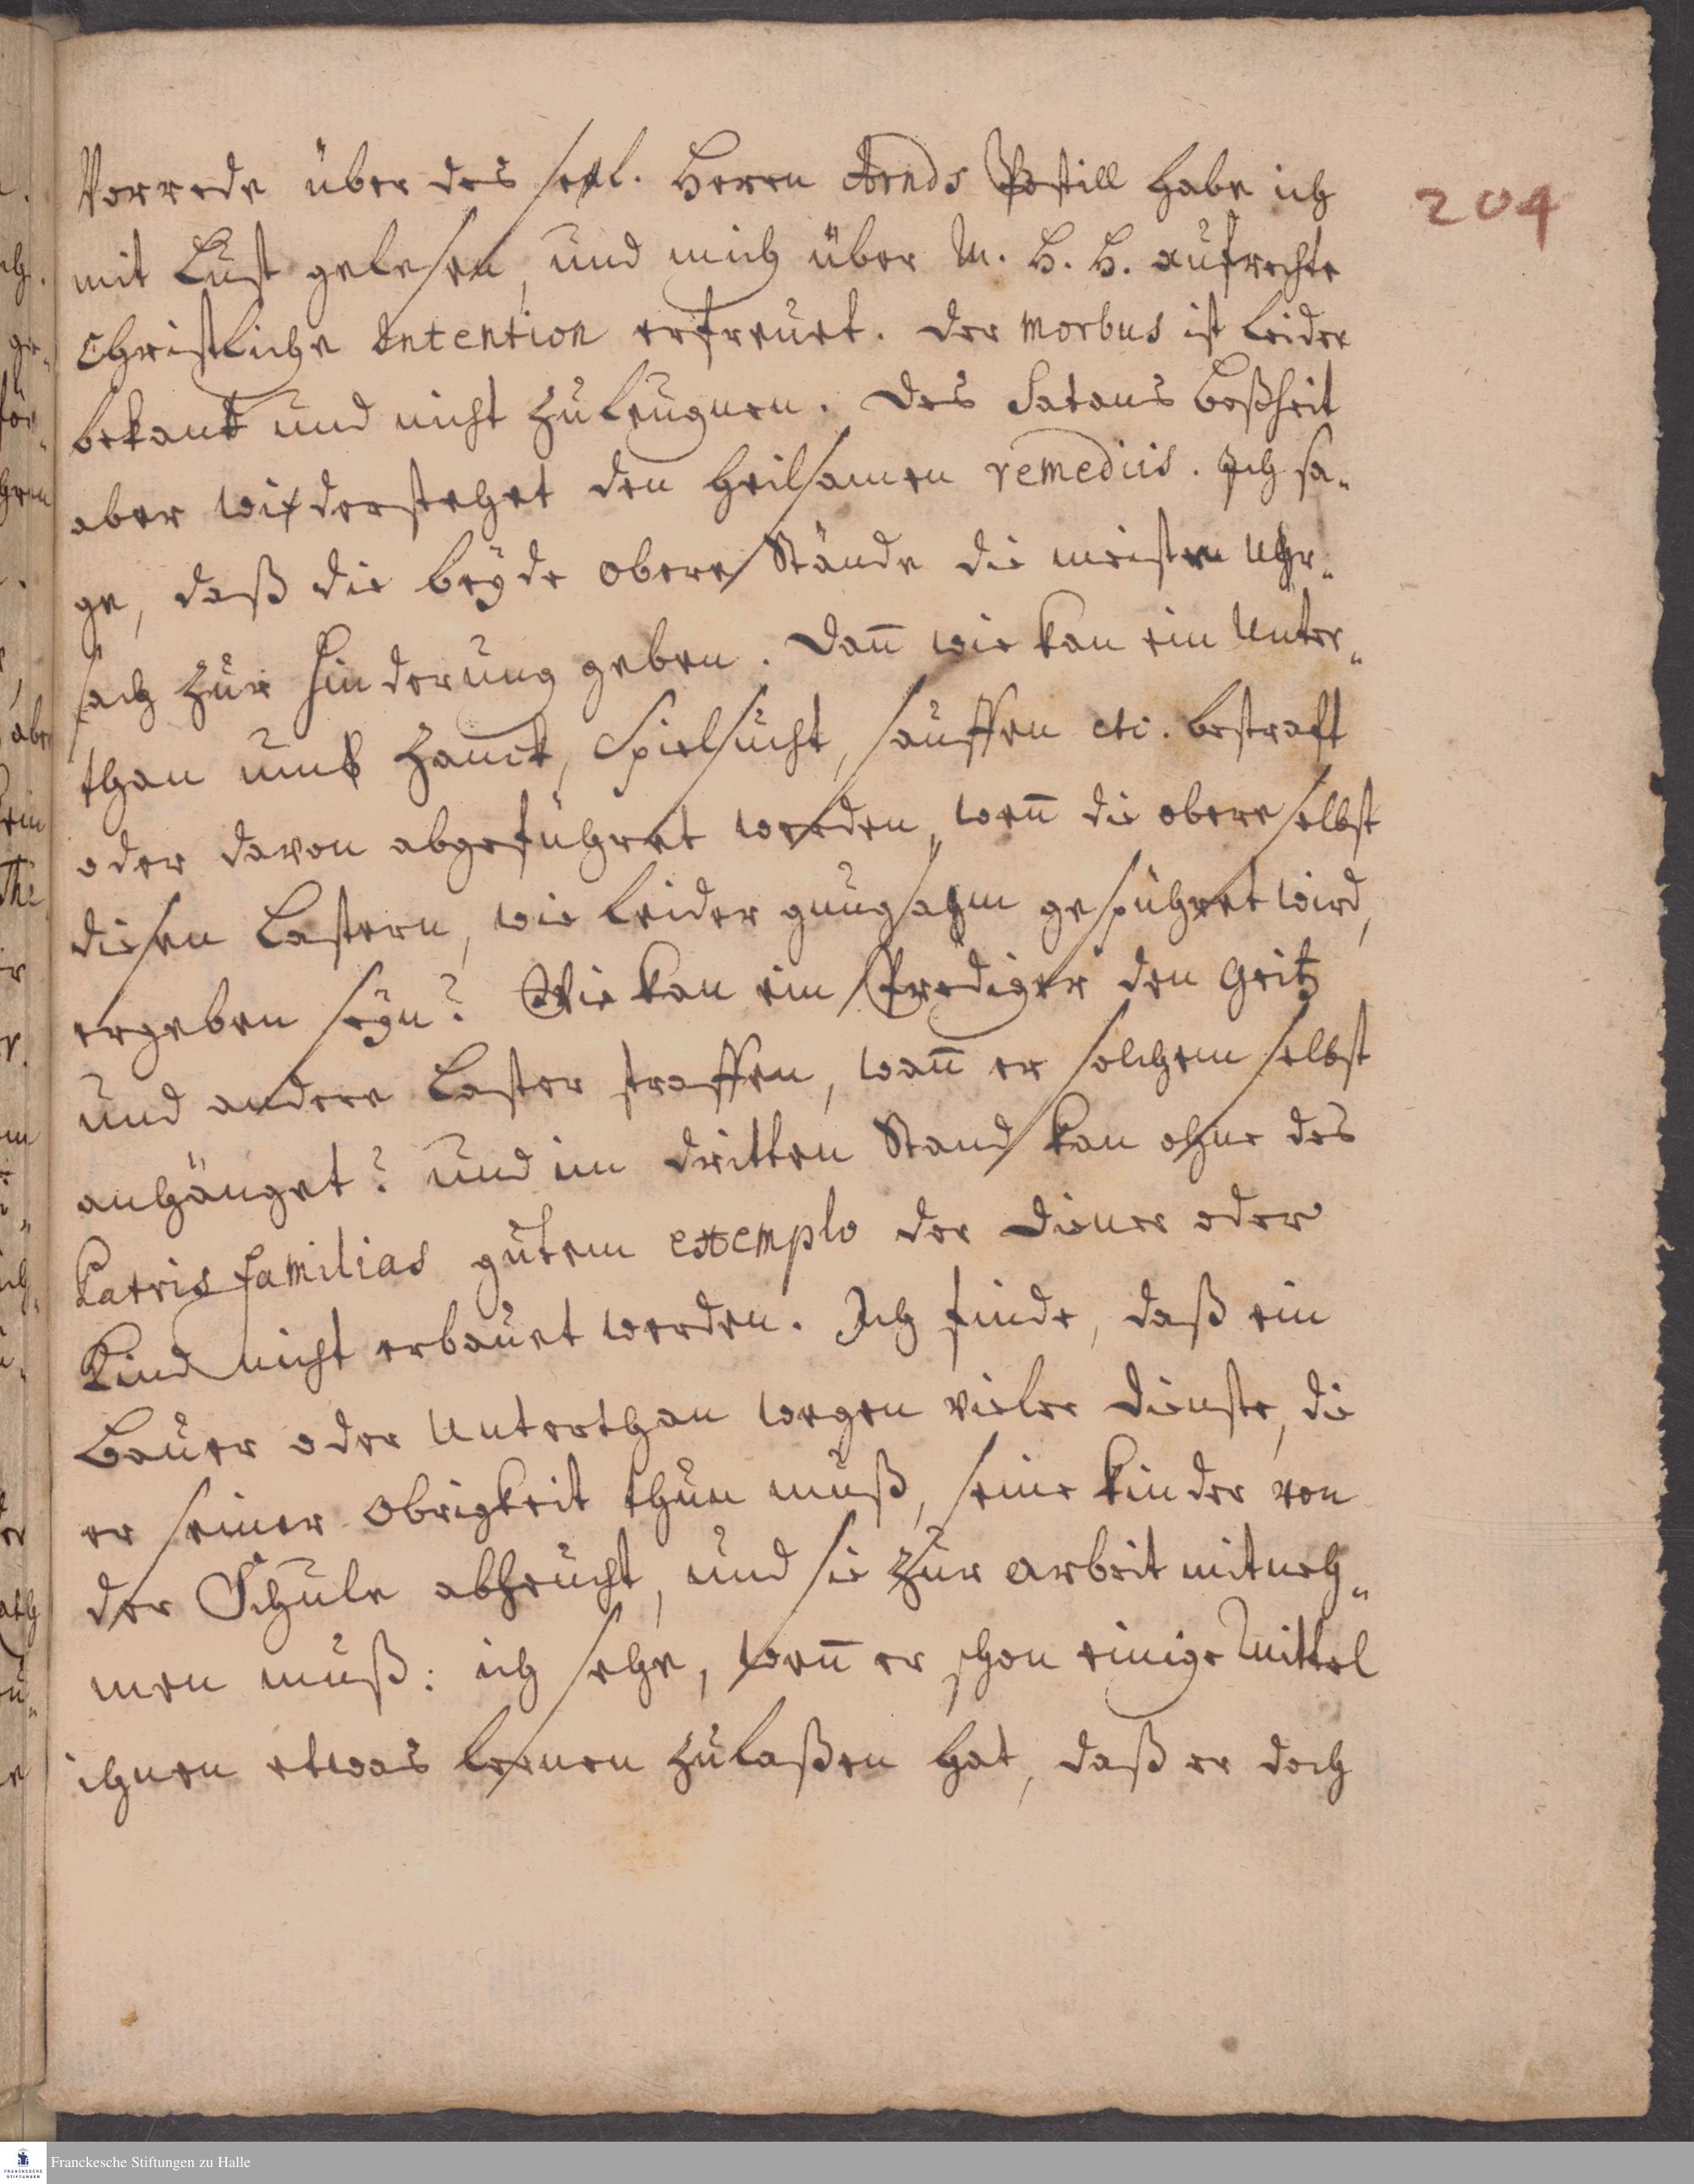 204
Vorrede über des seel. Herrn Arnds Postill habe ich
mit Lust gelesen, und mich über M. H. H. aufrechte
Christliche Intention erfreuet. Der morbus ist leider
bekant und nicht zu leugnen. Des Satans boßheit
aber wiederstehet den heilsamen remediis. Ich sa-
ge, daß die beyde obere Stände die meisten Uhr-
sach zur hinderung geben. Dan̄ wie kan ein Unter-
than umb Zanck, Spielsucht, sauffen etc. bestraft
oder davon abgeführet werden, wen̄ die obere selbst
diesen Lastern, wie leider gnugsahm gespühret wird,
ergeben seyn? Wie kan ein Prediger den Geitz
und andere Laster straffen, wan̄ er solchem selbst
anhänget? und im dritten Stand kan ohne des
Patris familias gutem exemplo der Diener oder
Kind nicht erbauet werden. Ich finde, daß ein
Bauer oder Unterthan wegen vieler Dienste, die
er seiner Obrigkeit thun muß, seine Kinder von
der Schule abzeucht, und sie zur arbeit mitneh-
men muß: ich sehe, wen̄ er schon einige Mittel
ihnen etwas lernen zulaßen hat, daß er doch
Franckesche Stiftungen zu Halle